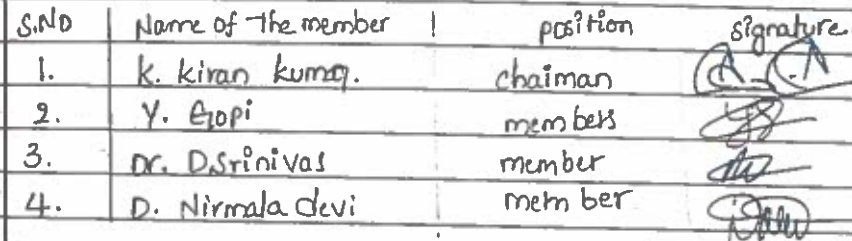 S.NO Name of the member position signature
1. K. Kiran kumar. chaiman
2. Y. Gopi members
3. Dr. D.Srinivas member
4. D. Nirmala devi member